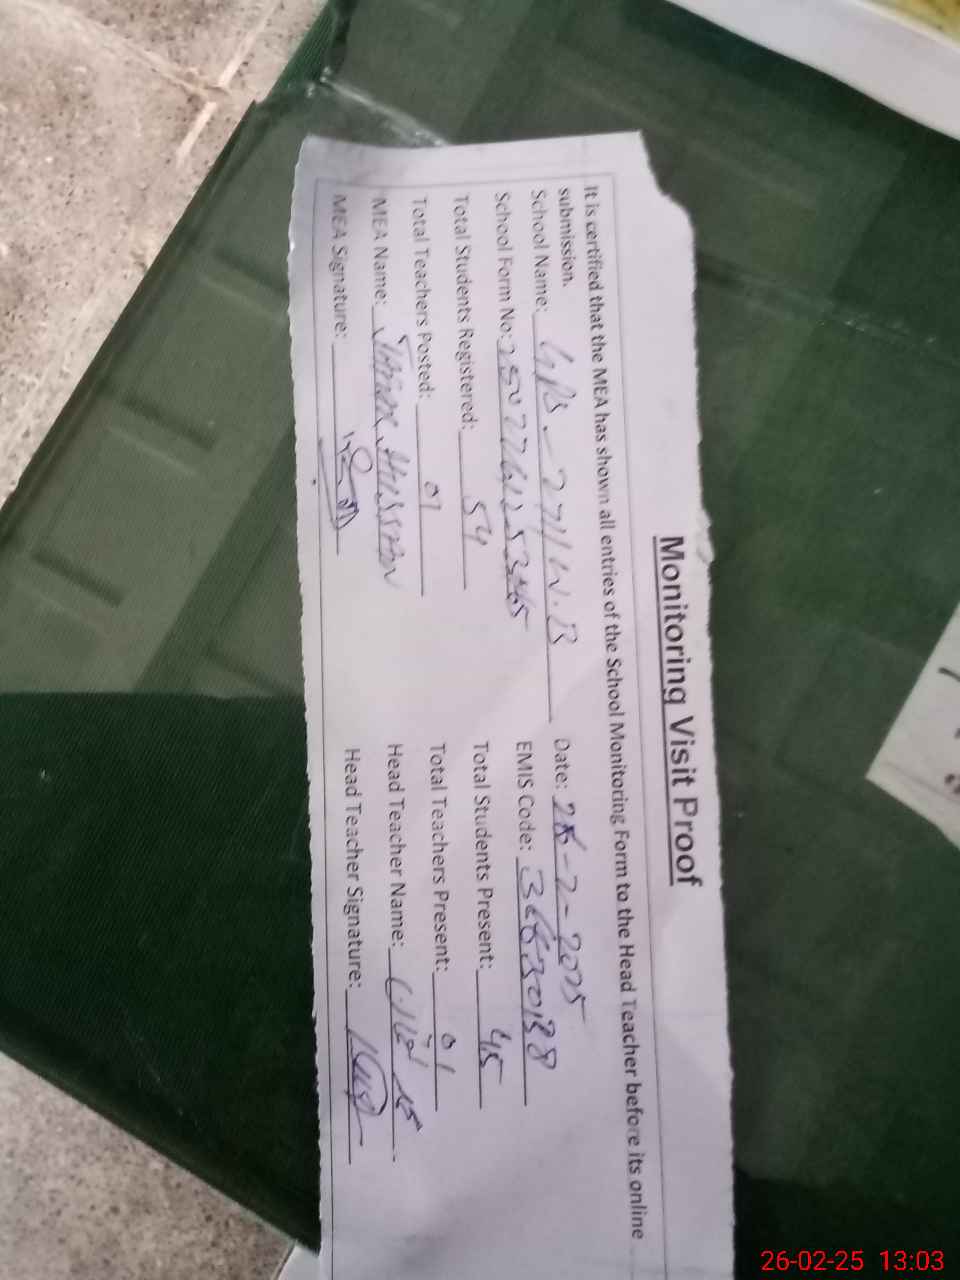 Monitoring Visit Proof
It is certified that the MEA has shown all entries of the School Monitoring Form to the Head Teacher before its online
submission.
School Name: G/PS - 277/W.B Date: 26-2-2025
School Form No: EMIS Code: 36630188
Total Students Registered: 54 Total Students Present: 45
Total Teachers Posted: 01 Total Teachers Present: 01
MEA Name: Hussain Head Teacher Name:
MEA Signature: Head Teacher Signature:
26-02-25 13:03